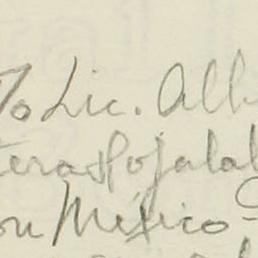 To Lic. Alb
teras Hojalat
on México-